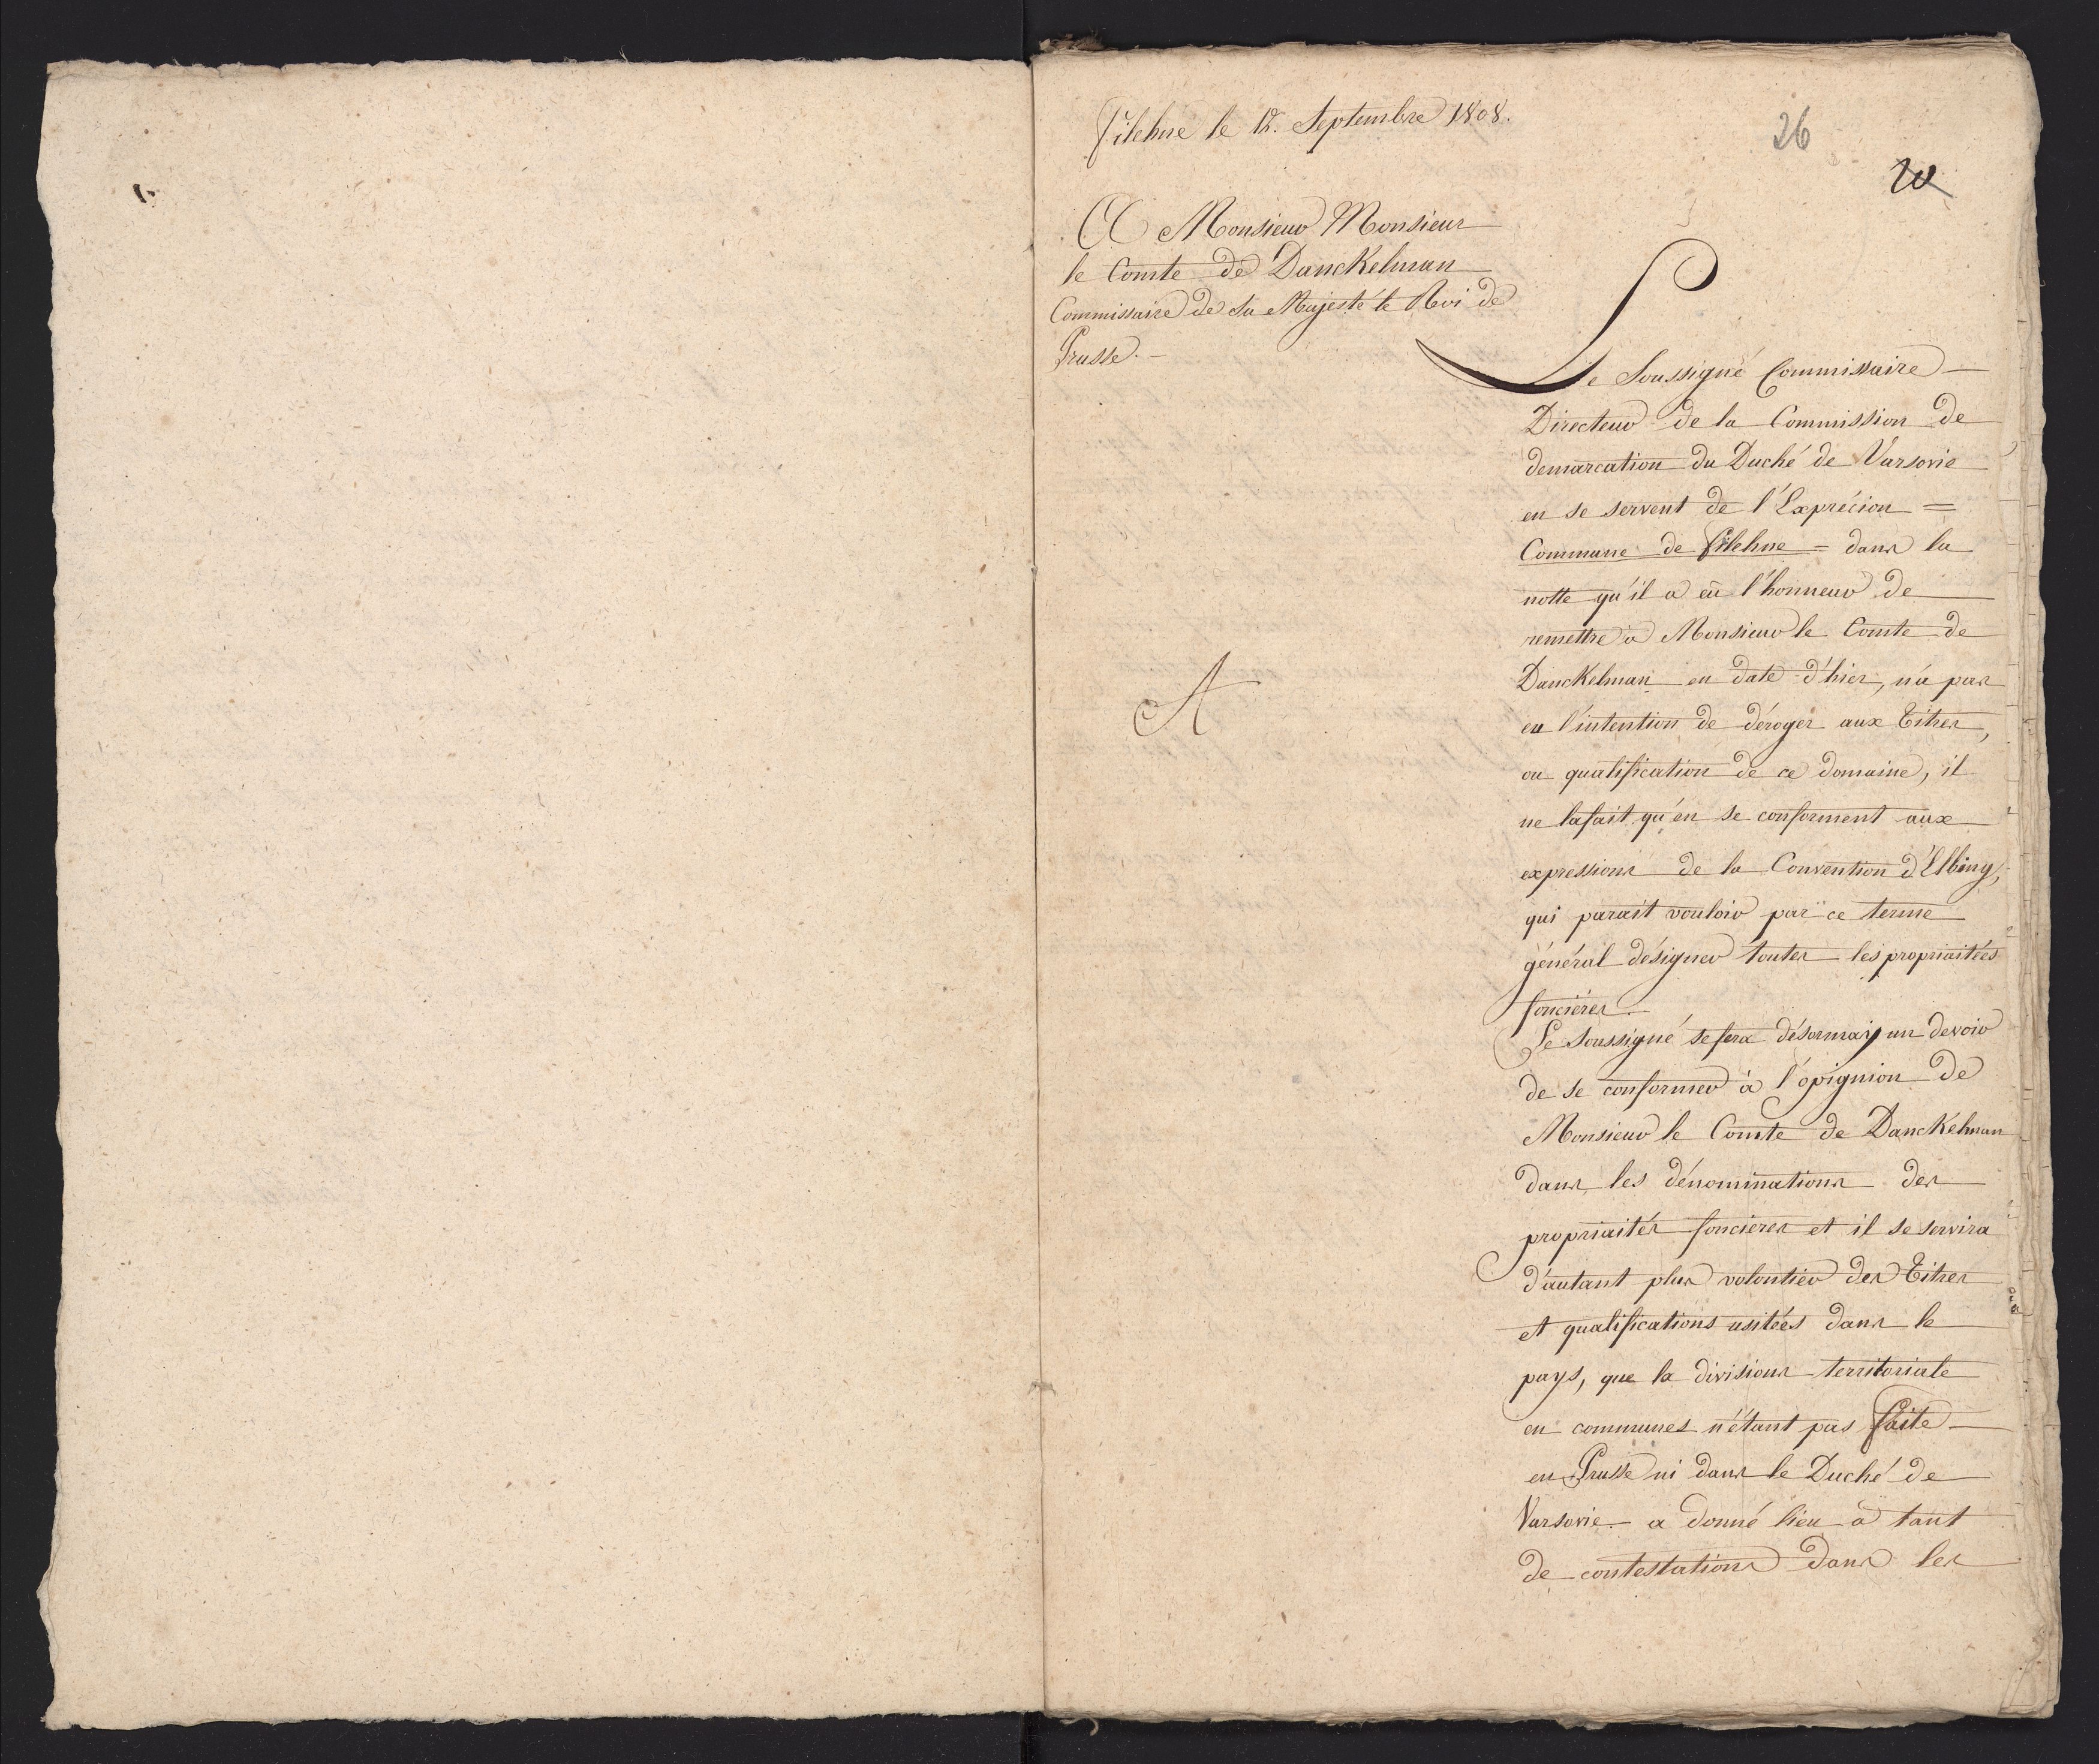 Filehne le 12. Septembre 1808.
26
20
A Monsieur Monsieur
le Comte de Danckelman
Commissaire de Sa Majesté le Roi de
Prusse.
Le Soussigné Commissaire
Directeur de la Commission de
demarcation du Duché de Varsovie
en se servent de l'Exprécion =
Commune de Filehne = dans la
notte qu'il a eû l'honneur de
remettre à Monsieur le Comte de
Danckelman en date d'hier, n'a pas
eu l'intention de déroger aux Titres,
ou qualification de ce domaine, il
ne lafait qu'en se conforment aux
expressions de la Convention d'Elbing,
qui parait vouloir par ce terme
général désigner toutes les propriaitées
foncières.
Le Soussigné se fera désormais un devoir
de se conformer à l'opignion de
Monsieur le Comte de Danckelman
dans les dénominations des
propriaités foncieres et il se servira
d'autant plus volontier des Titres
et qualifications usitées dans le
pays, que la divisions territoriale
en communes n'étant pas faite
en Prusse ni dans le Duché de
Varsovie. a donné lieu à tant
de contestations dans les
A